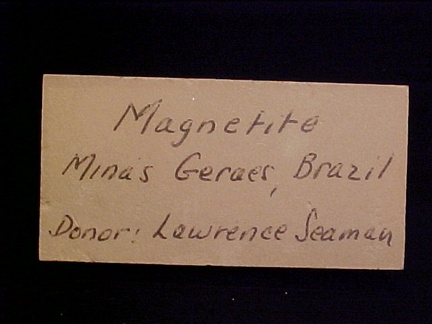 Magnetite
Minas Geraes, Brazil
Donor: Lawrence Seaman